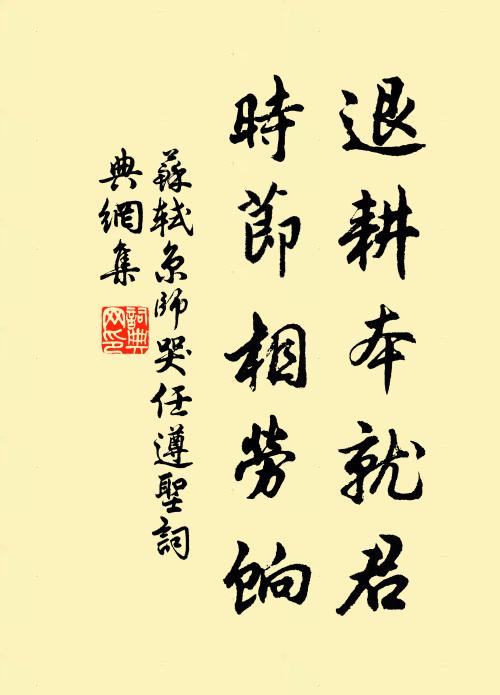 退耕本就君
時節相勞餉
蘇軾京師哭任遵聖詞
典網集
詞典網印